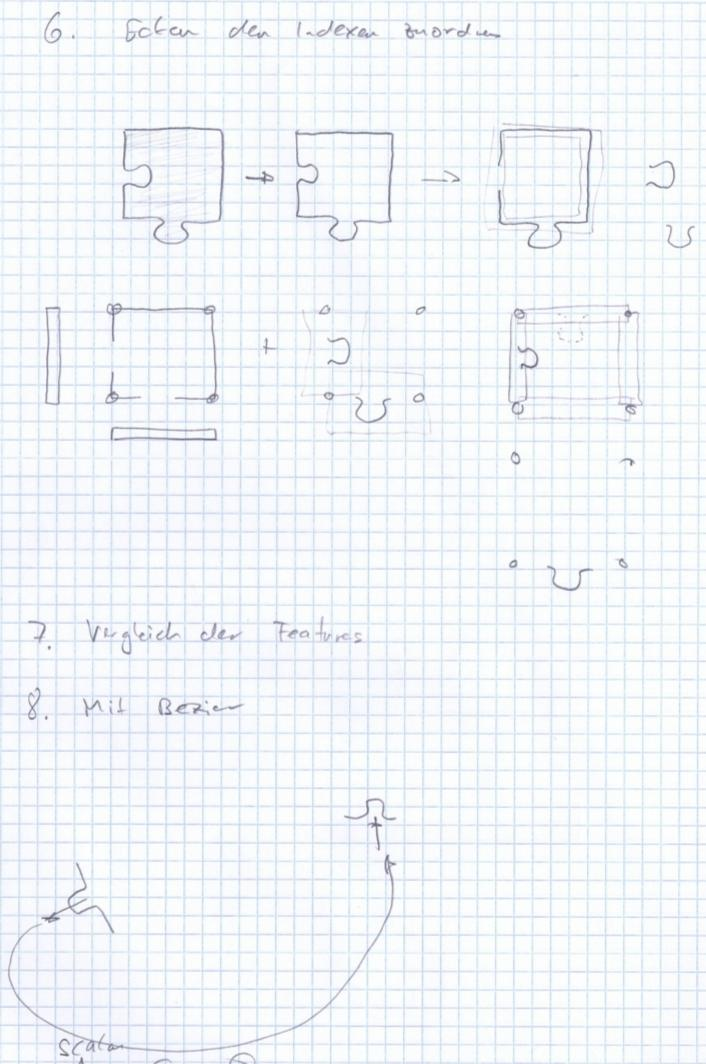 6. Ecken den Indexen zuordnen
7. Vergleich der Features
8. Mit Bezier